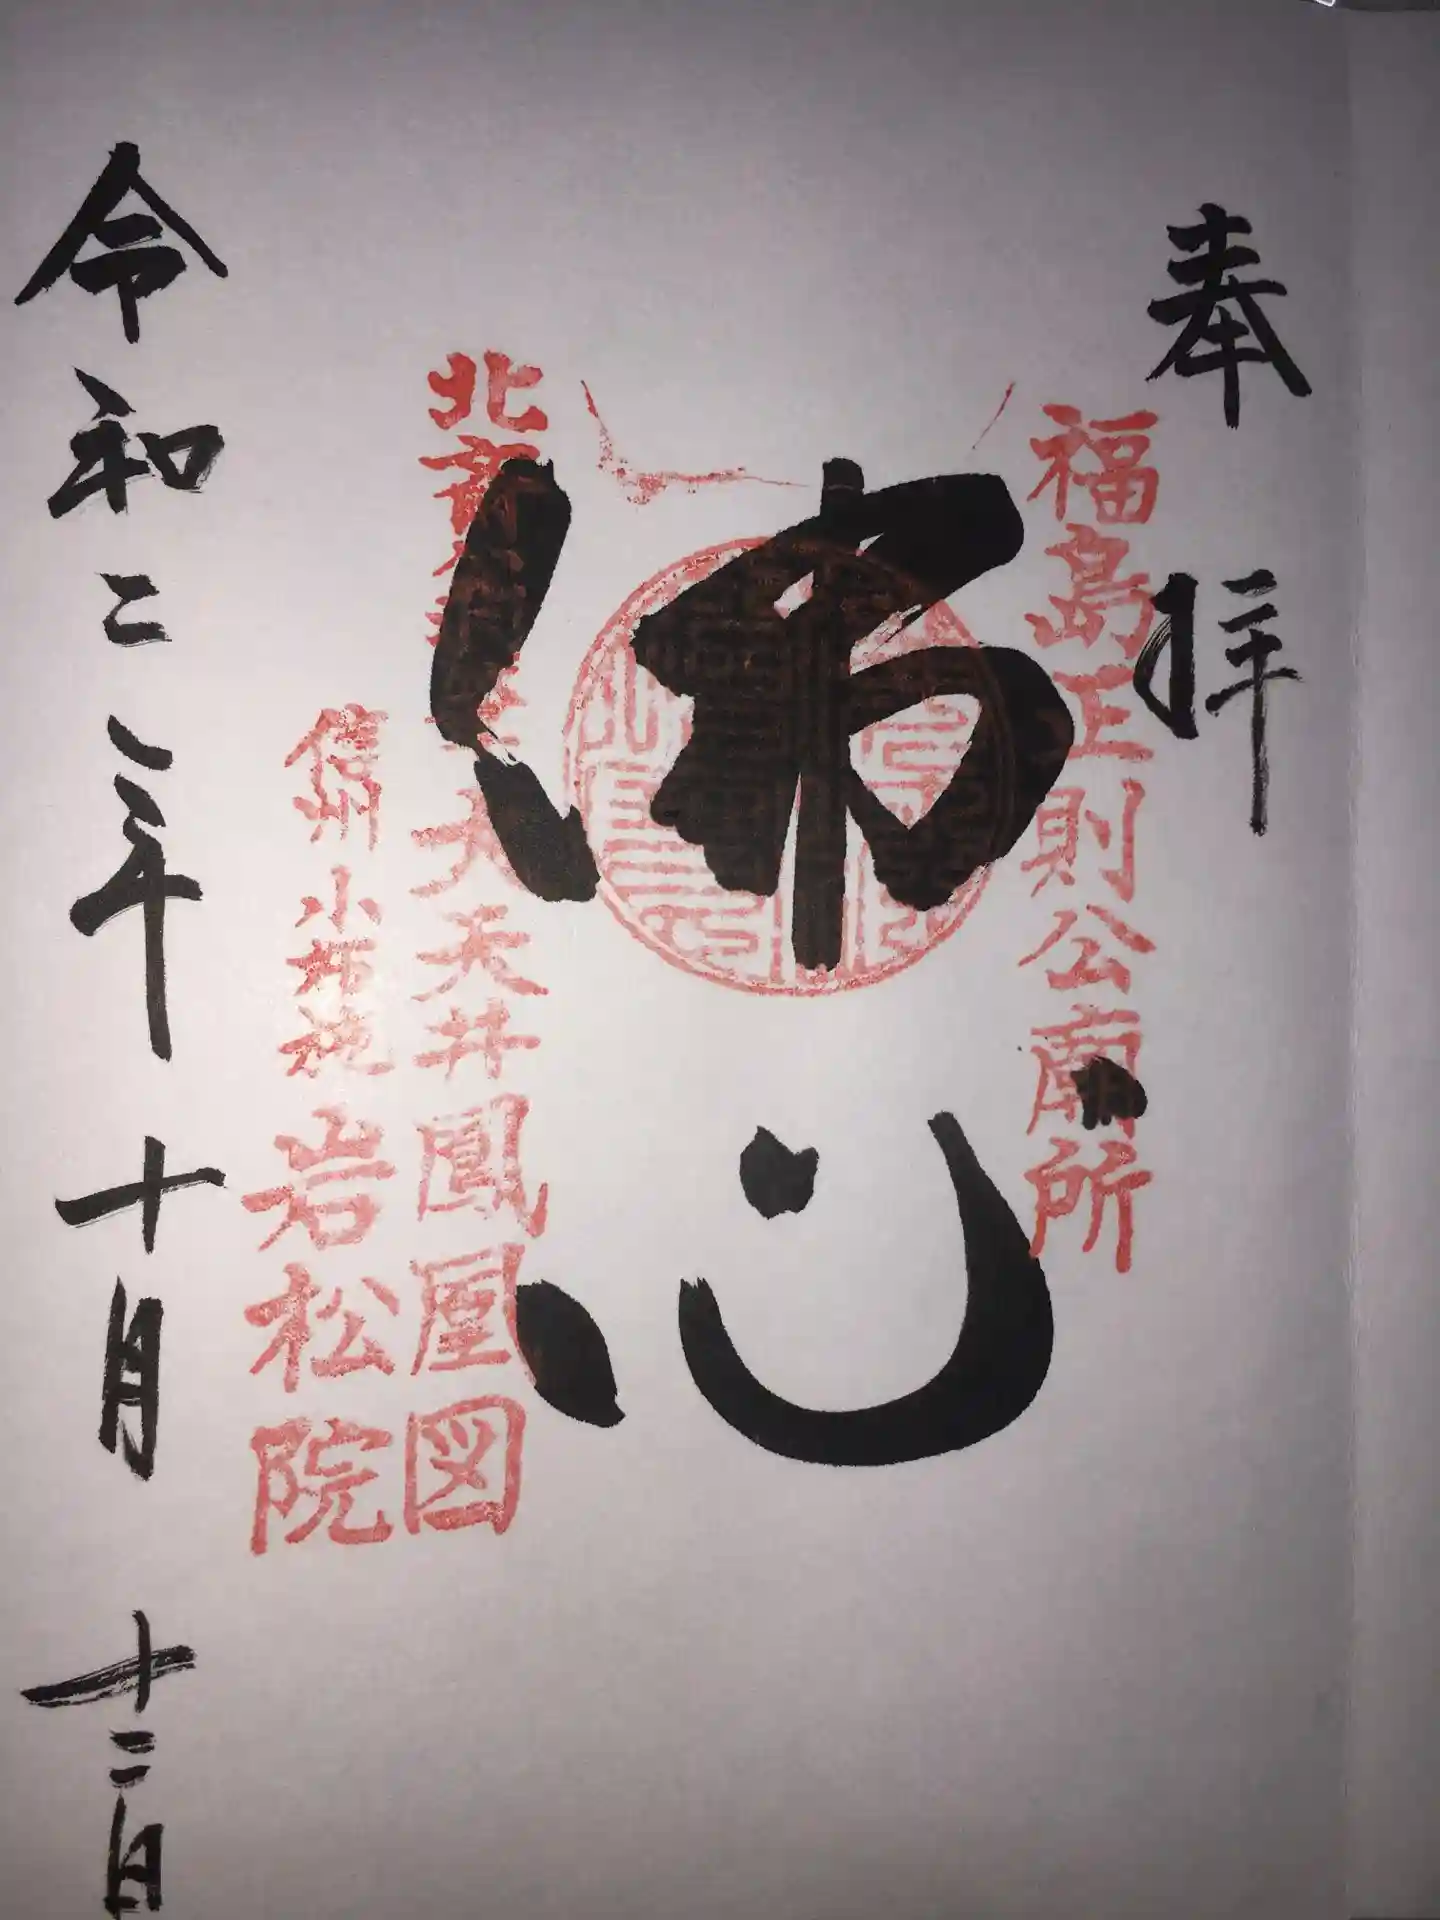 奉拝
福島正則公廟所
佛心
北斎
大天井鳳凰図
信州小布施岩松院
令和二年十月十二日